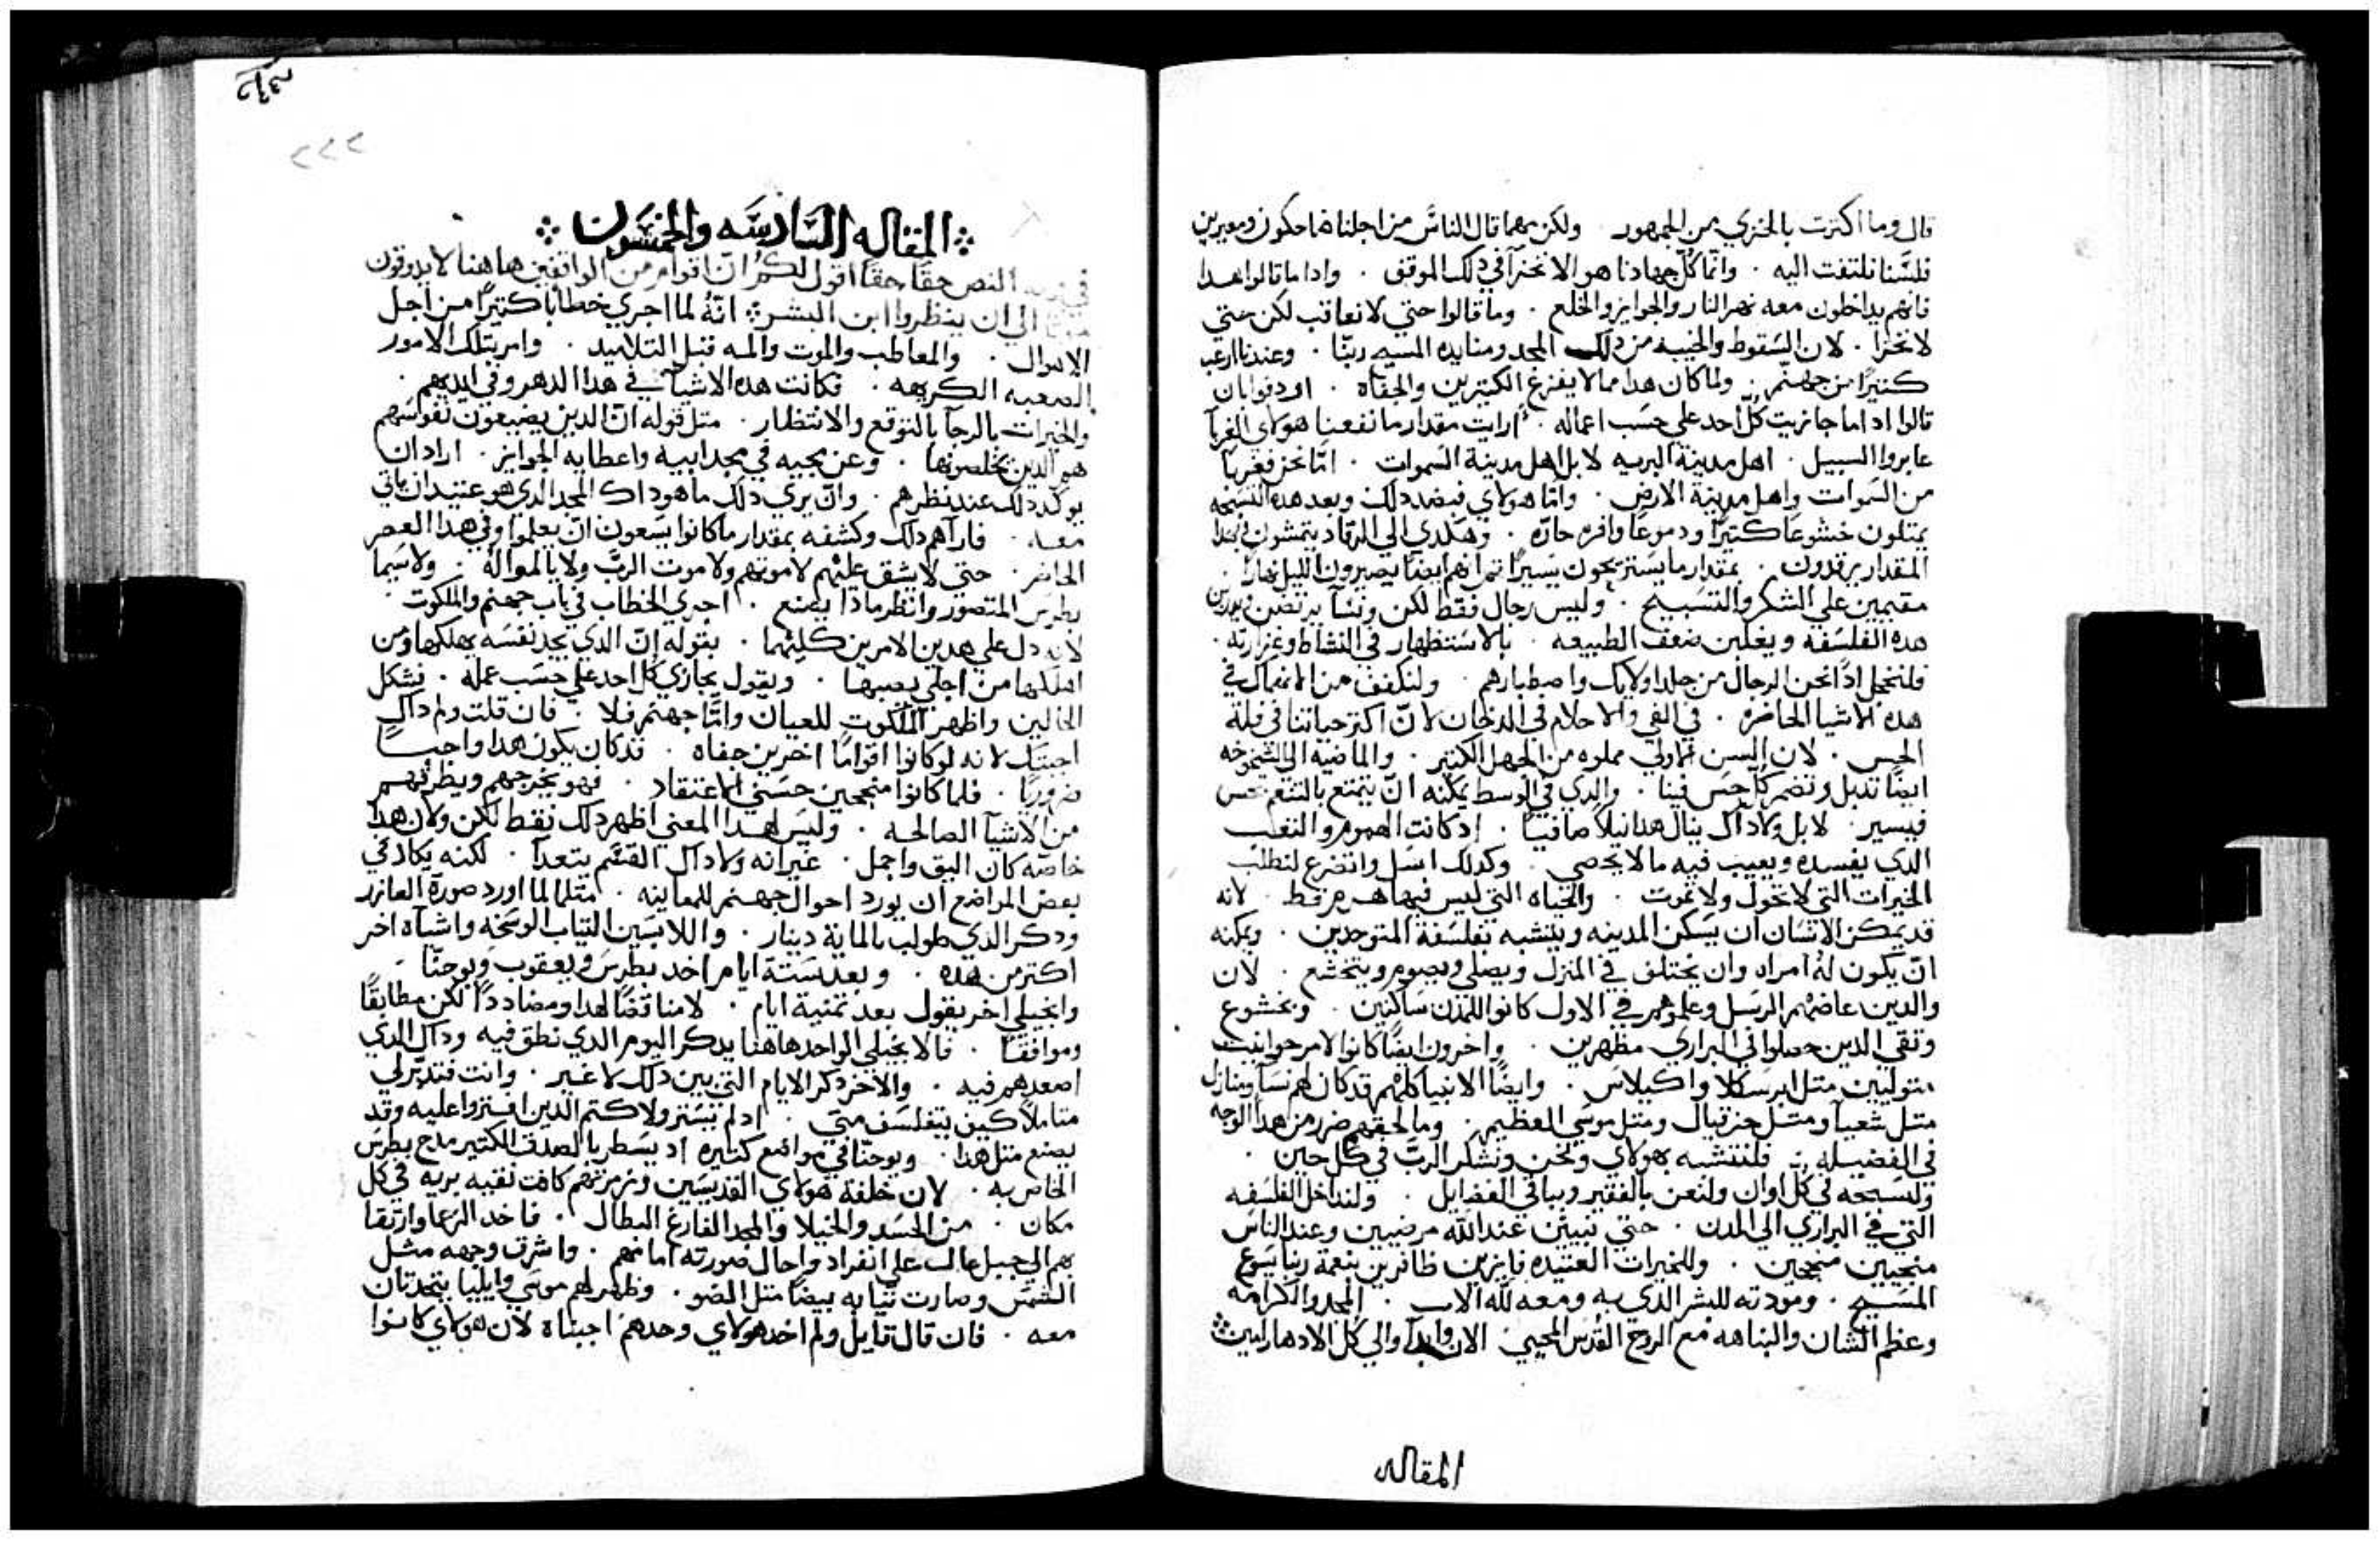 قال وما اكترت بالخزي من الجمهور ولكن مهما قال الناس من اجلنا ضاحكون ومعيرين
فلسنا نلتفت اليه . وانما كل جهادنا هو الا نخزا في دلك الموقف . وادا ما قالوا هدا
فانهم يداخلون معه نهر النار والجوايز والخلع . وما قالوا حتي لا نعاقب لكن حتي
لا نخزا . لان السقوط والخيبه من دلك المجد ومنابده المسيح ربنا . وعندنا ارعب
كثيرًا من جهنم . ولما كان هدا مما لا يفزع الكتيرين والجفاه . اردفوا بان
قالوا ادا ما جازيت كل احد علي حسب اعماله . ارايت مقدار ما نفعنا هولاي الغربا
عابروا السبيل . اهل مدينة البريه لا بل اهل مدينة السموات . انا نحن فغربا
من السموات واهل مدينة الارض . واما هولاي فبضد دلك وبعد هده التسبحه
يمتلون خشوعًا كتيرًا ودموعًا وافره حاره . وهكدي الي الرقاد يتمشون
المقدار يرقدون . بمقدار ما يستريحون يسيرًا ايضا يصيرون الليل نهارا
مقيمين علي الشكر والتسبيح . وليس رجال فقط لكن ونسآ يرتضن
هده الفلسفه ويغلبن ضعف الطبيعه . بالاستظهار في النشاط وغزارته .
فلنخجل ادًا نحن الرجال من جلد اوليك واصطبارهم . ولنكفف من الانهماك في
هده الاشيا الحاضره . في الفي والاحلام في الدخان لان اكتر حياتنا في قلة
الحس . لان السن الاولي مملوه من الجهل الكتير . والماضيه الي الشيخوخه
ايضًا تدبل وتضمر كل حس فينا . والدي في الوسط يمكنه ان يتمتع بالتنعم بحس
فيسير . لا بل ولا داك ينال هدا نيلًا صافيًا . اد كانت الهموم والتعب
الدي يفسده ويعيب فيه ما لا يحصي . وكدلك اسل واتضرع لنطلب
الخيرات التي لا تحول ولا تموت . والحياه التي ليس فيها هرم قط . لانه
قد يمكن الانسان ان يسكن المدينه ويتشبه بفلسفة المتوحدين . ويمكنه
ان يكون له امراه وان يختلف في المنزل ويصلي ويصوم ويتخشع . لان
والدين عاضدهم الرسل وعلموهم في الاول كانوا للمدن ساكنين . وبخشوع
وتقي الدين حصلوا في البراري مظهرين . واخرون ايضًا كانوا لامر حوانيت
متوليين متل ابرسكلا واكيلاس . وايضًا الانبيا كلهم قد كان لهم نسآ ومنازل
متل شعيآ ومتل حزقيال ومتل موسي العظيم . وما لحقهم ضرر من هدا الوجه
في الفضيله . فلنتشبه بهولاي ونحن ونشكر الرب في كل حين .
ولنسبحه في كل اوان ولنعن بالفقير وبباقي الفضايل . ولنداخل الفلسفه
التي في البراري الي المدن . حتي نبين عند الله مرضيين وعند الناس
منجيين منجحين . وللخيرات العتيده فايزين ظافرين بنعمة ربنا يسوع
المسيح . ومودته للبشر الدي به ومعه لله الاب . المجد والكرامه
وعظم الشان والنباهه مع الروح القدس المحيي الان وابدآ والي كل الادهار امين
المقاله
٢٢٢
المقاله السادسه والخمسون
النص حقًا حقًا اقول لكم ان اقوام من الواقفين هاهنا لا يدوقون
الي ان ينظروا ابن البشر . انه لما اجري خطابا كتيرًا من اجل
الاهوال . والمعاطب والموت والمه قتل التلاميد . وامر بتلك الامور
الصعبه الكريهه . فكانت هده الاشيآ في هدا الدهر وفي ايديهم .
والخيرات بالرجآ بالتوقع والانتظار . متل قوله ان الدين يضيعون نفوسهم
هم الدين يخلصونها . وعن مجيه في مجد ابيه واعطايه الجوايز . اراد ان
يوكد دلك عند نظرهم . وان يري دلك ما هو داك المجد الدي هو عتيد ان ياتي
معه . فارآهم دلك وكشفه بمقدار ما كانوا يسعون ان يعلموا وفي هدا العصر
الحاضر . حتي لا يشق عليهم لا موتهم ولا موت الرب ولا بالموالهُ . ولا سيما
بطرس المتصور وانظر مادا يصنع . اجري الخطاب في باب جهنم والملكوت
لانه دل علي هدين الامرين كليهما . بقوله ان الدي يجد نفسه يهلكها ومن
اهلكها من اجلي يصيبها . ويقول يجازي كل احد علي حسب عمله . فشكل
الحالين واظهر الملكوت للعيان واما جهنم فلا . فان قلت ولم داك
اجبتك لانه لو كانوا اقوامًا اخرين جفاه . قد كان يكون هدا واجبًا
ضروريًا . فلما كانوا منجحين حسني الاعتقاد . فهو يخرجهم ويظرفهم
من الاشيآ الصالحه . وليس لهدا المعني اظهر دلك فقط لكن ولان هدا
خاصه كان اليق واجمل . غير انه ولا داك القسم يتعدا . لكنه يكاد في
بعض المواضع ان يورد احوال جهنم للمعاينه . متلما لما اورد صورة العازر
ودكر الدي طولب بالماية دينار . واللابسين التياب الوسخه واشيآه اخر
اكتر من هده . وبعد ستة ايام اخد بطرس ويعقوب ويوحنا .
وانجيلي اخر يقول بعد تمنية ايام . لا مناقضًا لهدا ومضاددًا لكن مطابقًا
وموافقًا . فالانجيلي الواحد هاهنا يدكر اليوم الدي نطق فيه وداك الدي
اصعدهم فيه . والاخر دكر الايام التي بين دلك لا غير . وانت فتدبر لي
متاملًا كيف يتفلسف متي . اد لم يستر ولا كتم الدين اوثروا عليه وقد
يصنع متل هدا . ويوحنا في مواضع كتيره اد يسطر بالصدق الكتير مدايح بطرس
الخاص به . لان خلقة هولاي القديسين وزمرتهم كانت نقيه بريه في كل
مكان . من الحسد والخيلا والمجد الفارغ البطال . فاخد الزعما وارتقا
بهم الي جبل عال علي انفراد واحال صورته امامهم . واشرق وجهه متل
الشمس وصارت تيابه بيضا متل الضو . وظهر لهم موسي وايليا يتحدتان
معه . فان قال قايل ولم اخد هولاي وحدهم اجبناه لان هولاي كانوا